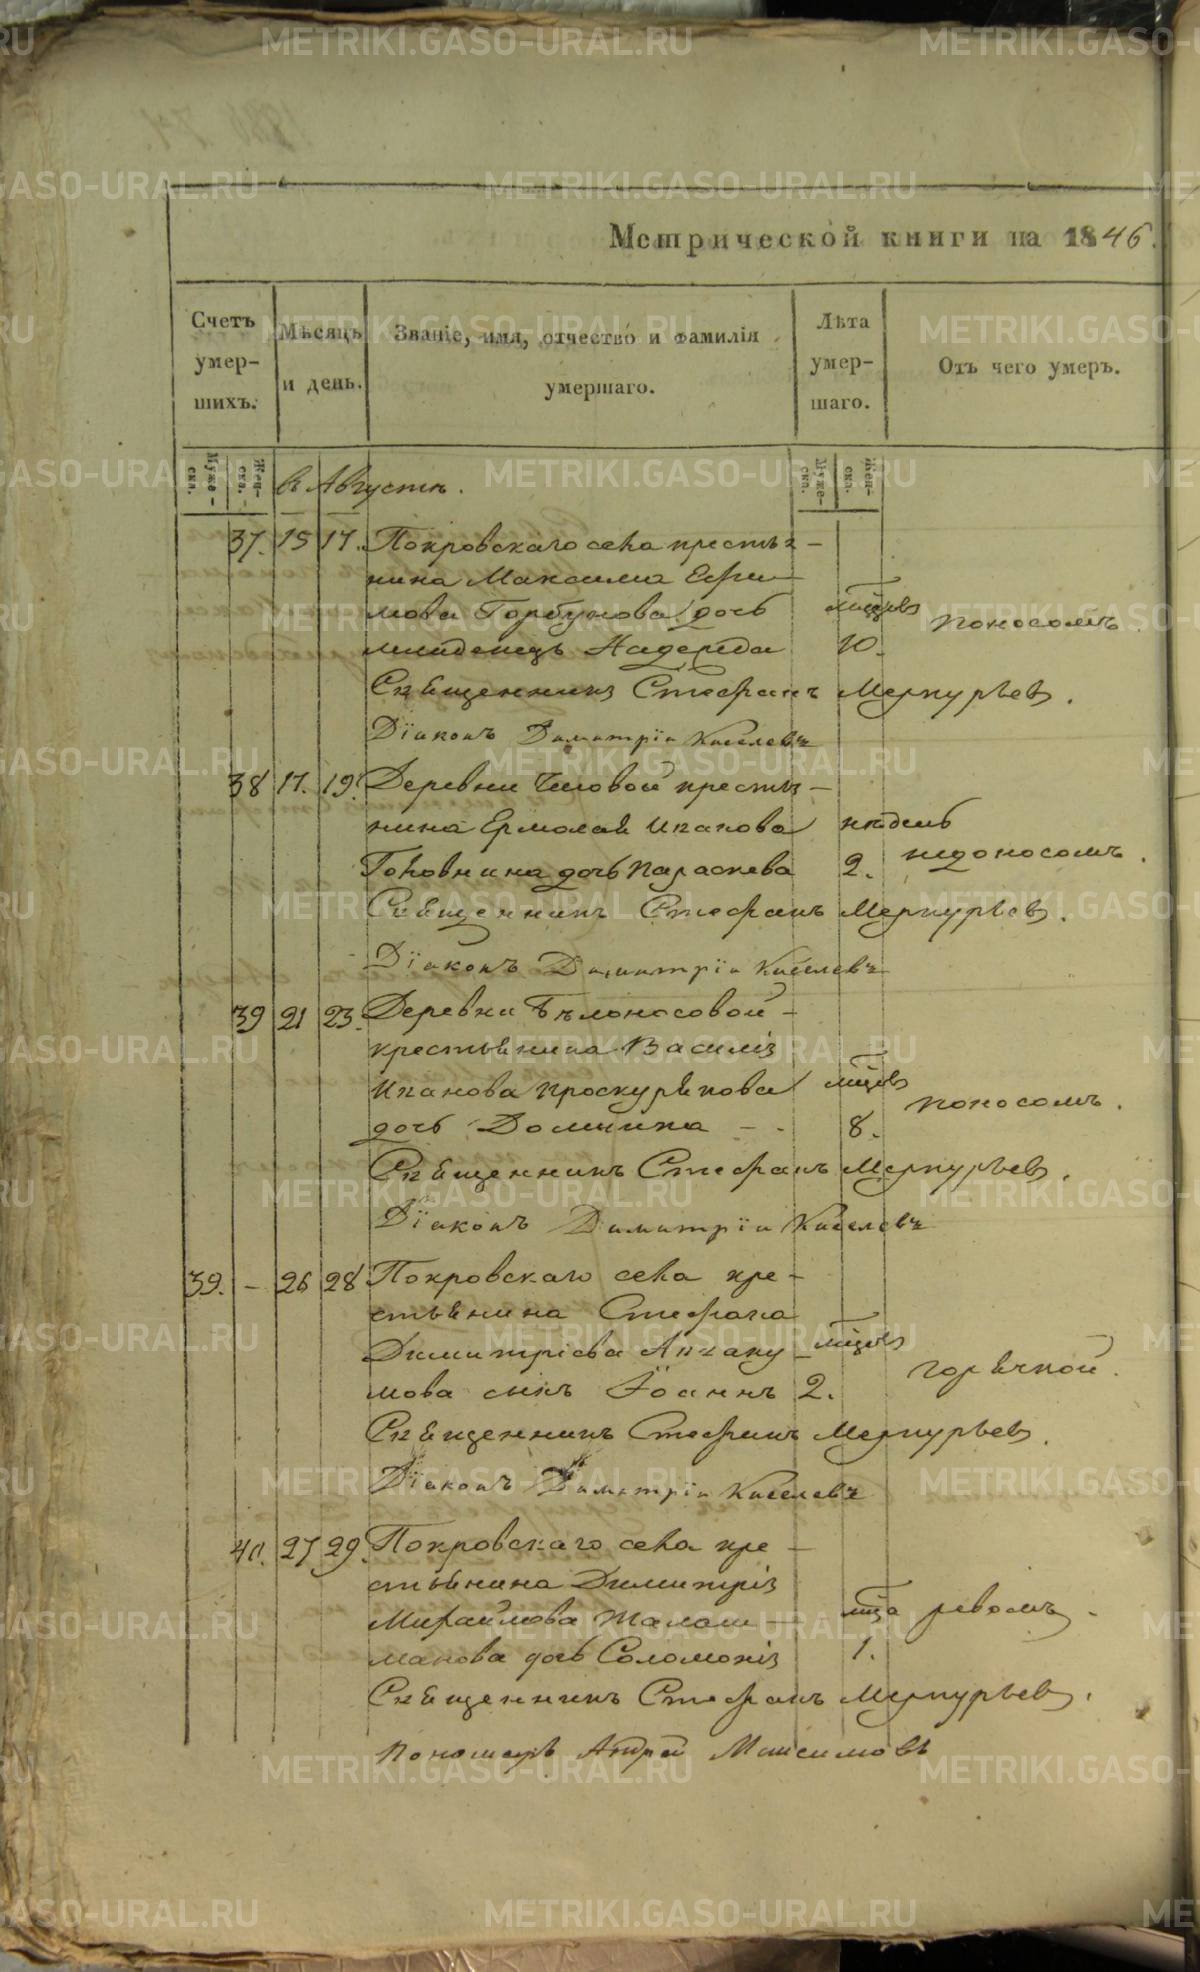 Метрической книги на 1846.
Счетъ умер-шихъ.
Мѣсяцъ и день.
Званіе, имя, отчество и фамилія умершаго.
Лѣта умер-шаго.
Отъ чего умеръ.
Муже-ска.
Жен-ска.
Муже-ска.
Жен-ска.
въ Августѣ.
37. 15 17. Покровскаго села крестья-
нина Максима Ефи-
мова Горбунова дочь мцевъ поносомъ
младенецъ Надежда 10.
Священникъ Стефанъ Меркурьевъ.
Діаконъ Димитрій Киселевъ
38 17. 19. Деревни крестья-
нина Ермолая Иванова недель
дочь Параскева 2. недоносомъ.
Священникъ Стефанъ Меркурьевъ.
Діаконъ Димитрій Киселевъ
39 21 23. Деревни Бѣлоносовой
крестьянина Василія
Иванова Проскурякова мцевъ поносомъ.
дочь Домника - - 8.
Священникъ Стефанъ Меркурьевъ.
Діаконъ Димитрій Киселевъ
39. - 26 28 Покровскаго села кре-
стьянина Стефана
Димитріева Абаку- мцевъ горячкой.
мова сынъ Іоаннъ 2.
Священникъ Стефанъ Меркурьевъ.
Діаконъ Димитрій Киселевъ
40. 27 29. Покровскаго села кре-
стьянина Димитрія
Михайлова Талаш- мца ревомъ
манова дочь Соломонія 1.
Священникъ Стефанъ Меркурьевъ.
Пономарь Андрей Максимовъ
METRIKI.GASO-URAL.RU